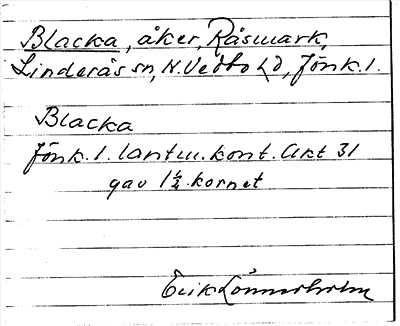 Blacka, åker, Råsmark,
Linderås sn, N. Vedbo hd, Jönk. l.
Blacka
Jönk. l. lantm. kont. Akt 31
gav 1 1/2 kornet
Erik Lönnerholm